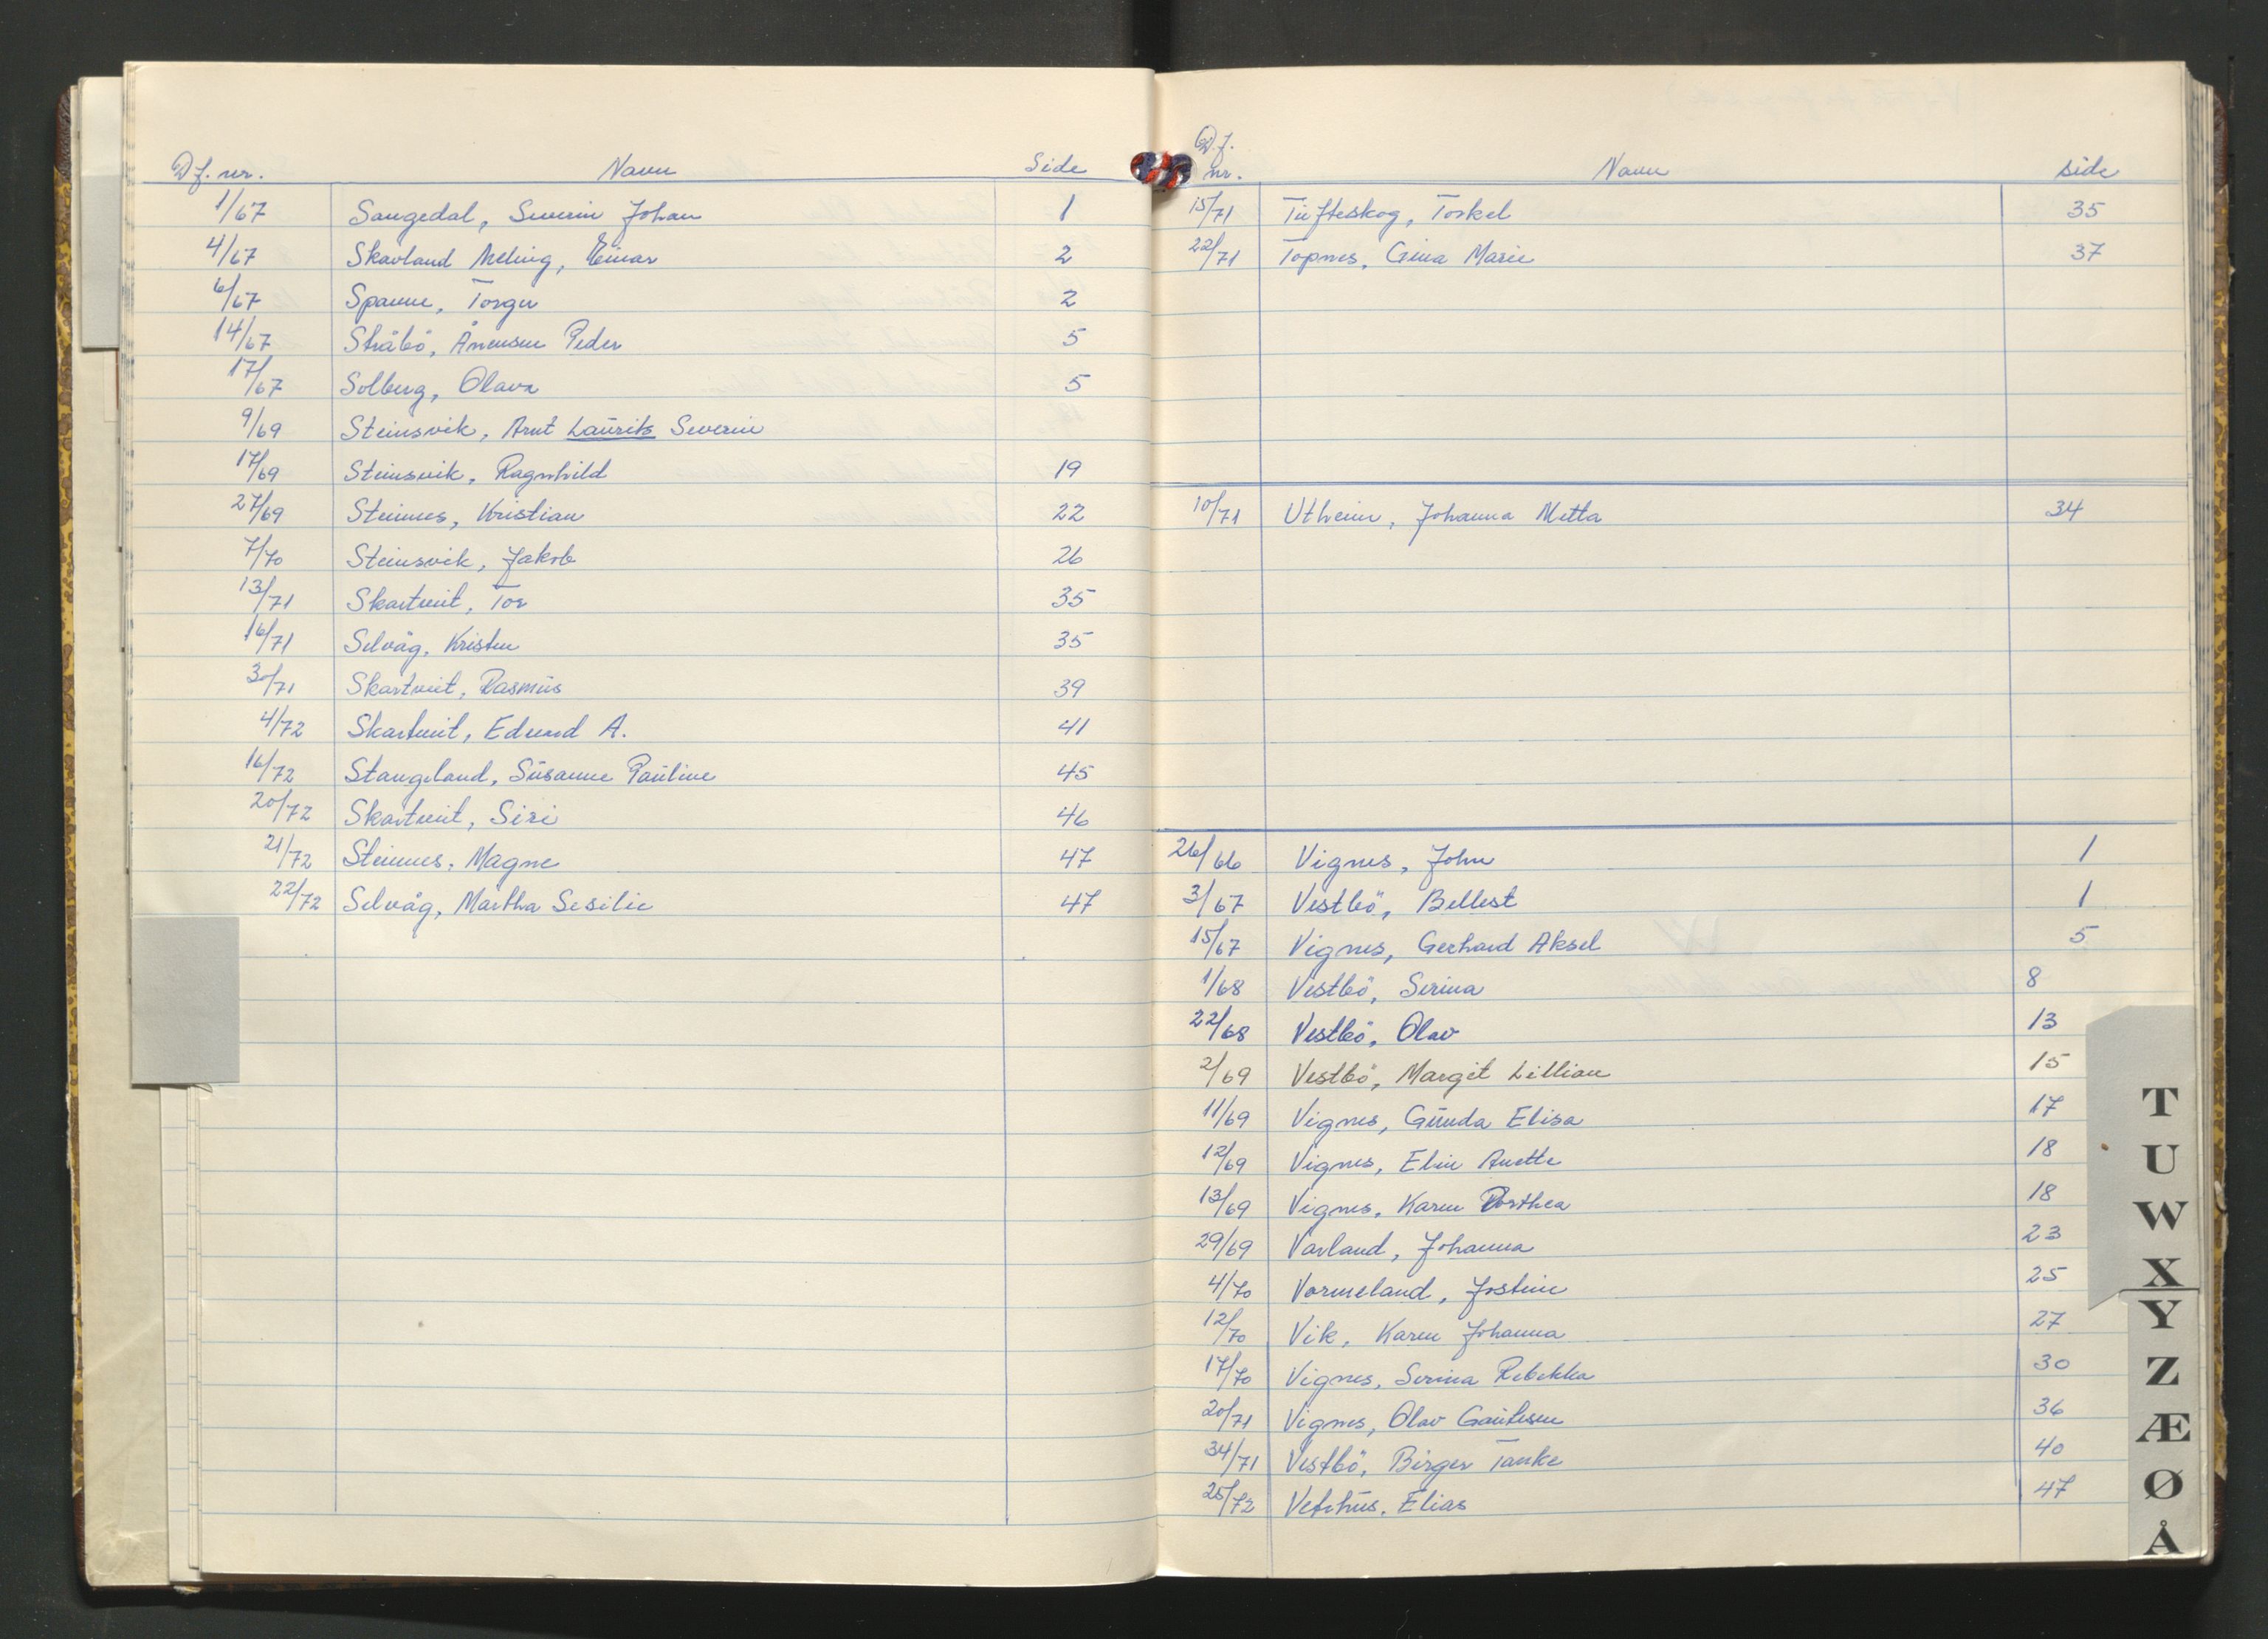 Df. nr. Navn Side
1/67 Saugedal, Severin Johan 1
4/67 Skavland Meling, Einar 2
6/67 Spanne, Torger 2
14/67 Stråbö, Ånensen Peder 5
17/67 Solberg, Olava 5
9/69 Steinsvik, Arnt Laurits Severin
17/69 Steinsvik, Ragnhild 19
27/69 Steinnes, Kristian 22
7/70 Steinsvik, Jakob 26
13/71 Skartveit, Tor 35
16/71 Selvåg, Kristen 35
30/71 Skartveit, Rasmus 39
4/72 Skartveit, Edvard A. 41
16/72 Stangeland, Susanne Pauline 45
20/72 Skartveit, Siri 46
21/72 Steinnes, Magne 47
22/72 Selvåg, Martha Sesilie 47
Df.
nr. Navn side
15/71 Tufteskog, Torkel 35
22/71 Topnes, Gina Marie 37
10/71 Utheim, Johanna Metta 34
26/66 Vignes, John 1
3/67 Vestbö, Bellest 1
15/67 Vignes, Gerhard Aksel 5
1/68 Vestbö, Serina 8
22/68 Vestbö, Olav 13
2/69 Vestbö, Margit Lillian 15
11/69 Vignes, Gunda Elisa 17
12/69 Vignes, Elin Anette 18
13/69 Vignes, Karen Dorthea 18
29/69 Varland, Johanna 23
4/70 Vormeland, Jostein 25
12/70 Vik, Karen Johanna 27
17/70 Vignes, Serina Rebekka 30
20/71 Vignes, Olav Gautesen 36
34/71 Vestbö, Birger Tanke 40
25/72 Vetrhus, Elias 47
T
U
W
X
Y
Z
Æ
Ø
Å